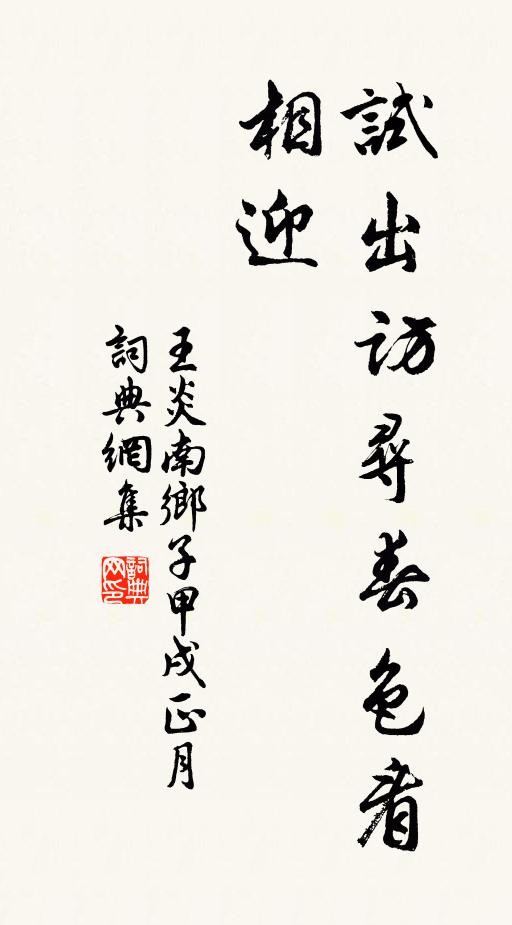 試出訪尋春色看
相迎
王炎南鄉子甲戌正月
詞典網集
詞典
网印